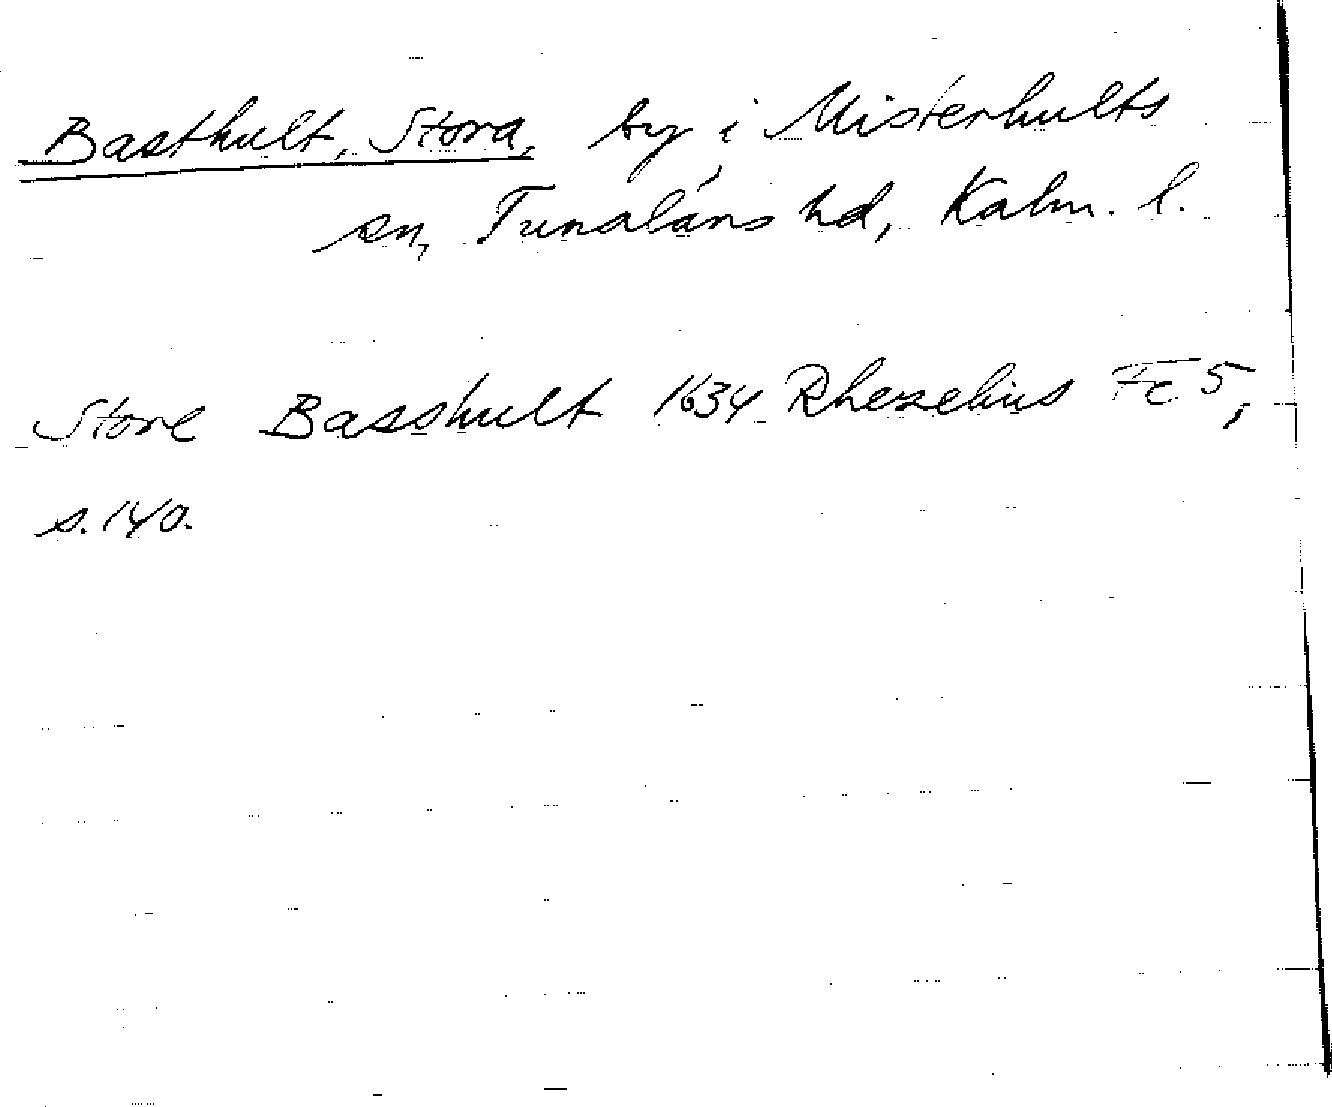 Basthult, Stora, by i Misterhults
sn, Tunaläns hd, Kalm. l.
Store Basshult 1634 Rhezelius Fc 5,
s. 140.